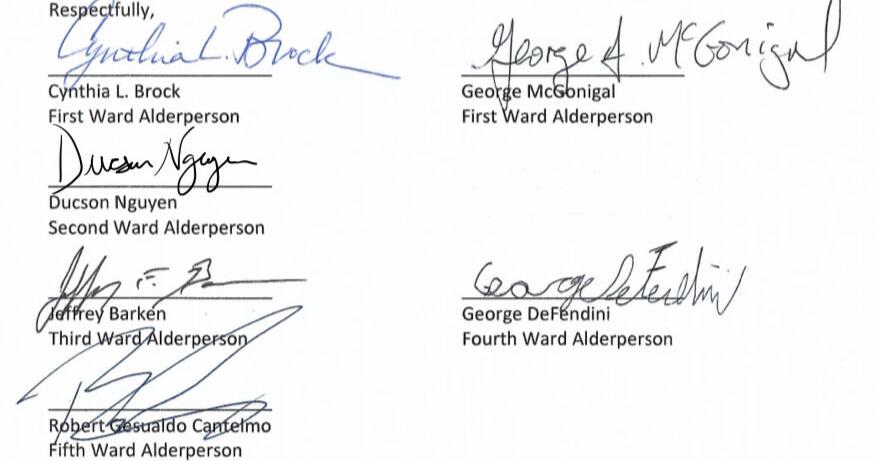 Respectfully,
Cynthia L. Brock
George A. McGonigal
Cynthia L. Brock
George McGonigal
First Ward Alderperson
First Ward Alderperson
Ducson Nguyen
Ducson Nguyen
Second Ward Alderperson
George DeFendini
Jeffrey Barken
George DeFendini
Third Ward Alderperson
Fourth Ward Alderperson
Robert Gesualdo Cantelmo
Fifth Ward Alderperson